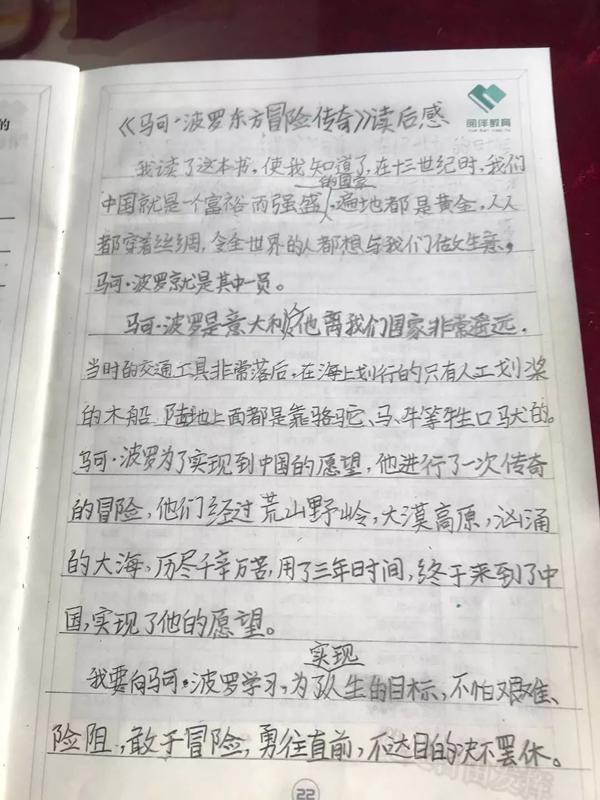 朋伴教育
《马可·波罗东方冒险传奇》读后感
我读了这本书，使我知道了，在十三世纪时，我们
的国家
中国就是一个富裕而强盛，遍地都是黄金，人人
都穿着丝绸，令全世界的人都想与我们做生意，
马可·波罗就是其中一员。
马可·波罗是意大利人他离我们国家非常遥远，
当时的交通工具非常落后，在海上划行的只有人工划桨
的木船，陆地上面都是靠骆驼、马、牛等牲口驮的。
马可·波罗为了实现到中国的愿望，他进行了一次传奇
的冒险，他们经过荒山野岭，大漠高原，汹涌
的大海，历尽千辛万苦，用了三年时间，终于来到了中
国，实现了他的愿望。
实现
我要向马可·波罗学习，为了人生的目标，不怕艰难、
险阻，敢于冒险，勇往直前，不达目的决不罢休。
22